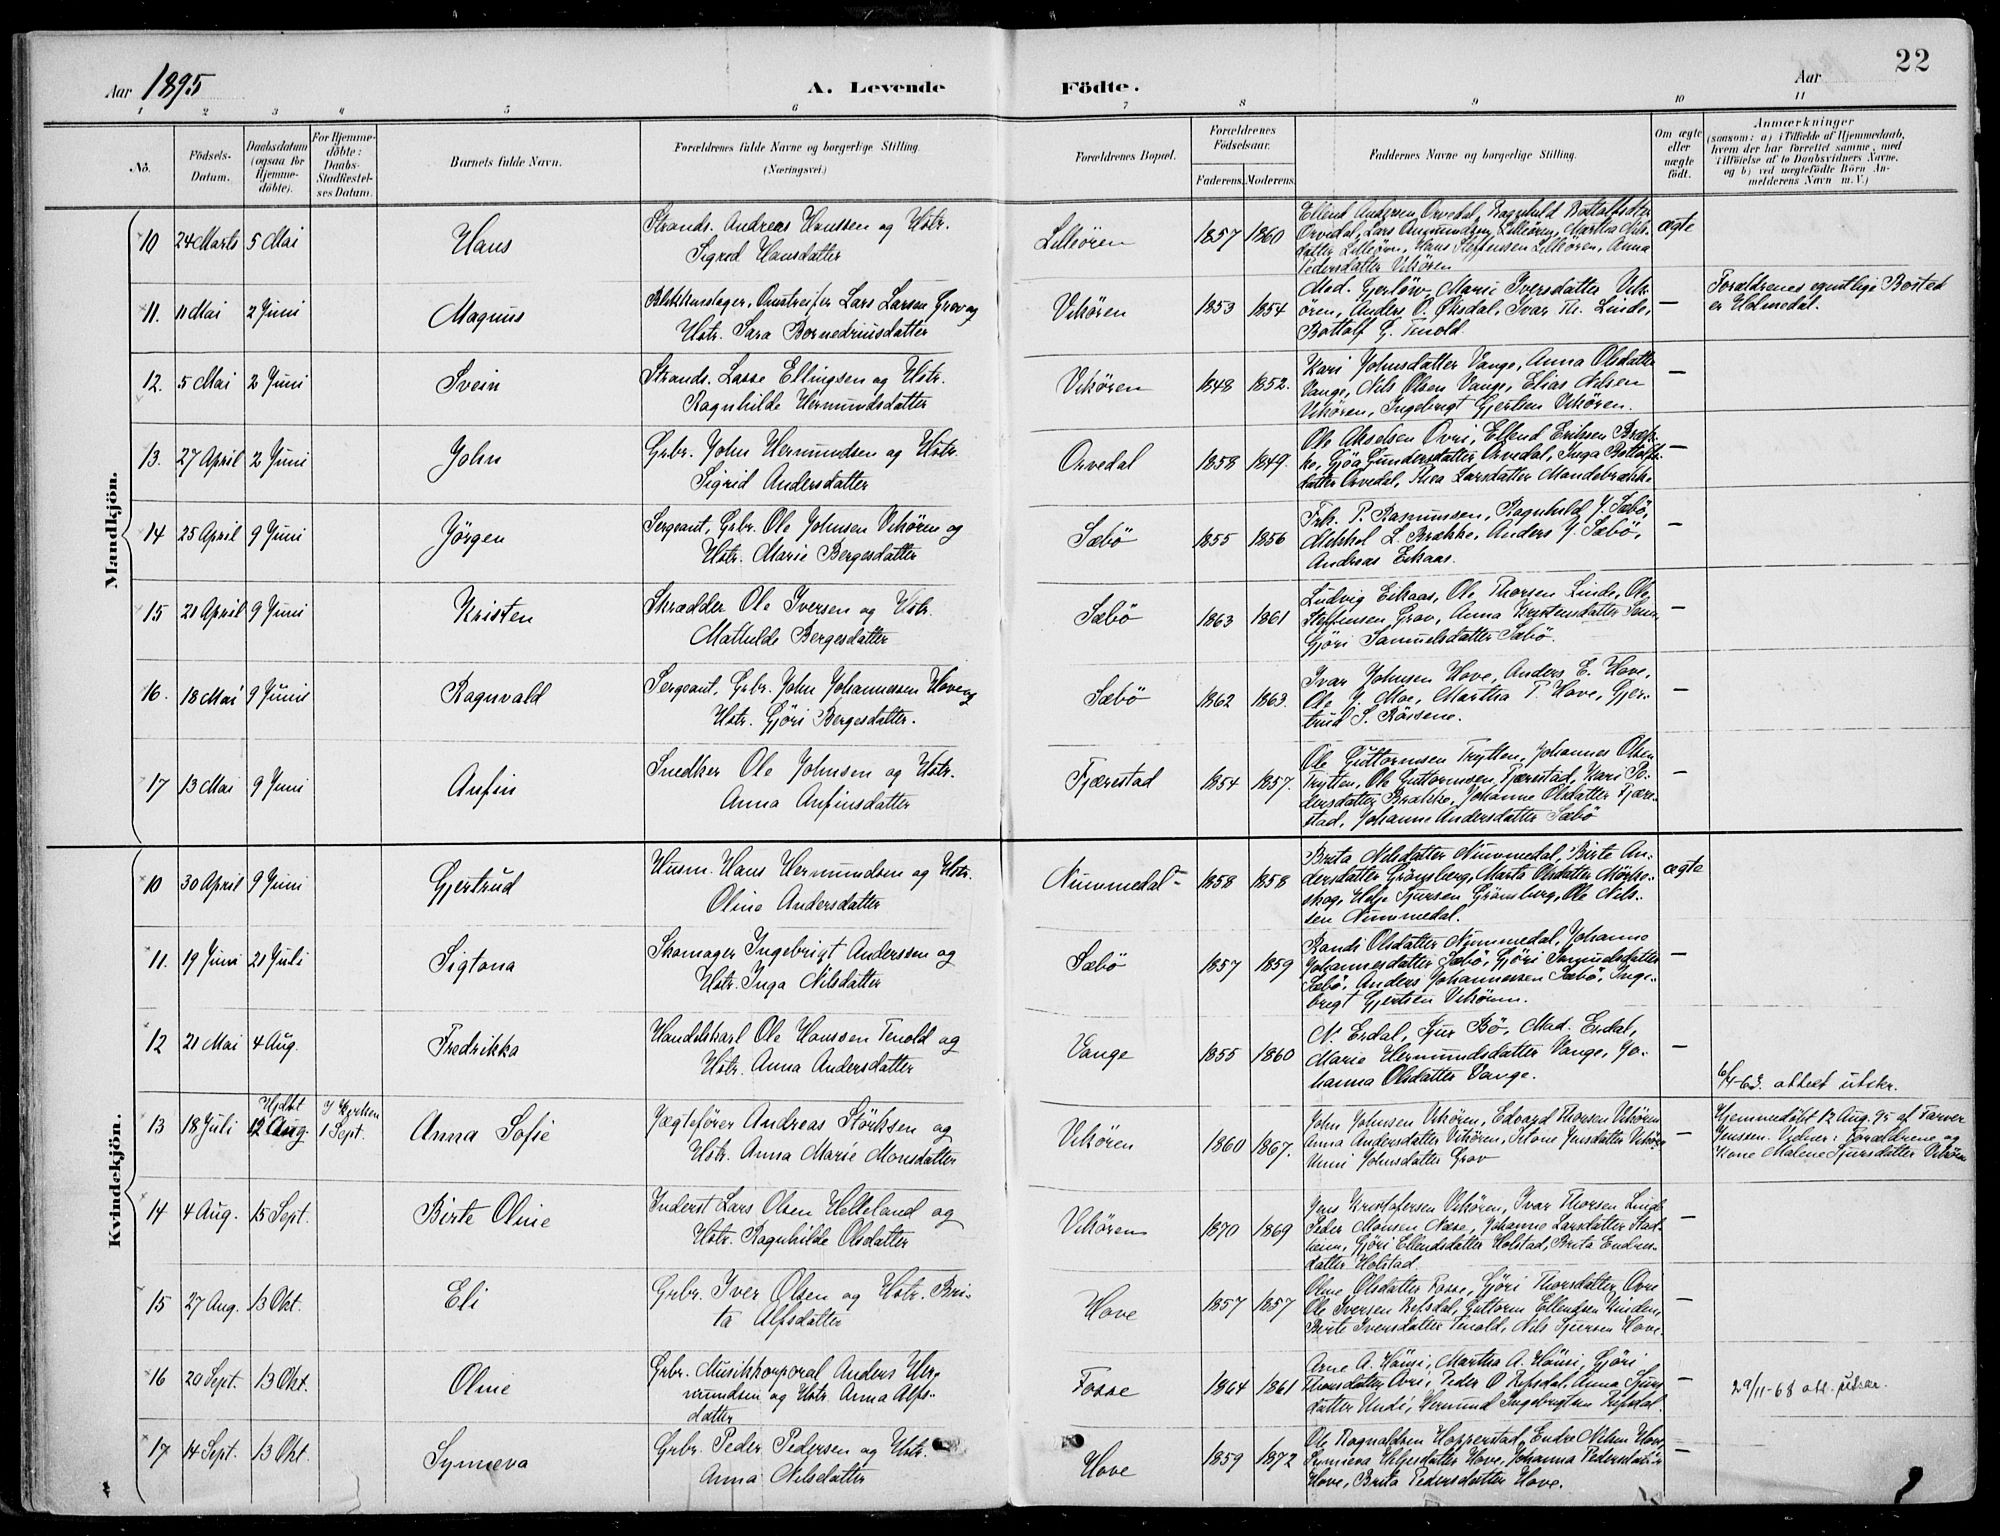 22
Aar 1895
A. Levende Födte.
Aar
1 2 3 4 5 6 7 8 9 10 11
No.
Födsels-Datum.
Daabsdatum (ogsaa for Hjemme-döbte).
For Hjemme-döbte: Daabs-Stadfæstel-ses Datum.
Barnets fulde Navn.
Forældrenes fulde Navne og borgerlige Stilling. (Næringsvei.)
Forældrenes Bopæl.
Forældrenes Födselsaar.
Faderens. Moderens.
Faddernes Navne og borgerlige Stilling.
Om ægte eller uægte födt.
Anmærkninger
(saasom: a) i Tilfælde af Hjemmedaab, hvem der har forrettet samme, med Tilföielse af to Daabsvidners Navne, og b) ved uægtefödte Börn An-melderens Navn m. V.)
Mandkjön.
10 24 Marts 5 Mai Hans
Strands. Andreas Hanssen og Hstr.
Sigrid Hansdatter
Lilleören 1857 1860
Ellend Andersen Orvedal, Ragnhild Bottolfsdtr
Orvedal, Lars Amundsen Lilleören, Martha Nils-
datter Lilleören, Hans Steffensen Lilleören, Anna
Pedersdatter Vikören
ægte
11. 11 Mai 2 Juni Magnus
Blikkenslager, Omstreifer Lars Larsen Grov og
Hstr. Sara Bornedriusdatter
Vikören 1853 1854
Mad. Gerlöw, Marie Iversdatter Vik-
ören, Anders O. Öksdal, Ivar Th. Linde,
Bottolf G. Tenold
—
Forældrenes egentlige Bosted
er Holmedal.
12. 5 Mai 2 Juni Svein
Strands. Lasse Ellingsen og Hstr.
Ragnhilde Hermundsdatter
Vikören 1848 1852.
Kari Johnsdatter Vange, Anna Olsdatter
Vange, Nils Olsen Vange, Elias Nilsen
Vikören, Ingebrigt Gjertsen Vikören.
—
13. 27 April 2 Juni John
Grbr. John Hermundsen og Hstr.
Sigrid Andersdatter
Orvedal 1858 1849.
Ole Akselsen Ovri, Ellend Eriksen Bræk-
ke, Gjöa Gundersdatter Orvedal, Inga Bottolfs-
datter Orvedal, Thea Larsdatter Mandebrække
—
14 25 April 9 Juni Jörgen
Sergeant, Grbr. Ole Johnsen Vikören og
Hstr. Marie Bergesdatter
Sæbö 1855 1856
Frk. P. Rasmussen, Ragnhild J. Sæbö,
Mikkel L. Brække, Anders J. Sæbö,
Andreas Eikaas.
—
15 21 April 9 Juni Kristen
Skrædder Ole Iversen og Hstr.
Mathilde Bergesdatter
Sæbö 1863 1861
Ludvig Eikaas, Ole Thorsen Linde, Ole
Steffensen Grov, Anna
Gjöri Samuelsdatter Sæbö.
—
16. 18 Mai 9 Juni Ragnvald
Sergeant, Grbr. John Johannessen Hove og
Hstr. Gjöri Bergesdatter.
Sæbö 1862 1863.
Ivar Johnsen Hove, Anders E. Hove,
Ole J. Moe, Martha P. Hove, Gjer-
trud S. Röysene.
—
17 13 Mai 9 Juni Anfin
Snedker Ole Johnsen og Hstr.
Anna Anfinsdatter
Fjærestad 1854 1857.
Ole Guttormsen Trytten, Johannes Olsen
Trytten, Ole Guttormsen Fjærestad, Kari Pe-
dersdatter Brække, Johanne Olsdatter Fjære-
stad, Johanne Andersdatter Sæbö
—
Kvindekjön.
10 30 April 9 Juni Gjertrud
Husm. Hans Hermundsen og Hstr.
Oline Andersdatter
Nummedal 1858 1858
Brita Nilsdatter Nummedal, Birte An-
dersdatter Grönsberg, Marta Olsdatter Mörke-
skog, Helje Sjursen Grönsberg, Ole Nils-
sen Nummedal.
ægte
11. 19 Juni 21 Juli Sigtona
Skomager Ingebrigt Anderssen og
Hstr. Inga Nilsdatter
Sæbö 1857 1859
Randi Olsdatter Nummedal, Johanne
Johannesdatter Sæbö, Gjöri Samuelsdatter
Sæbö, Anders Johannessen Sæbö, Inge-
brigt Gjertsen Vikören.
—
12 21 Mai 4 Aug. Fredrikka
Handelskarl Ole Hanssen Tenold og
Hstr. Anna Andersdatter
Vange 1855 1860
N. Erdal, Sjur Bö, Mad. Erdal,
Marie Hermundsdatter Vange, Jo-
hanna Olsdatter Vange.
—
6/4-63. attest utskr.
13 18 Juli Hjdbt 12 Aug. I Kirken 1 Sept. Anna Sofie
Jægtefører Andreas Störksen og
Hstr. Anna Marie Monsdatter
Vikören 1860 1867.
John Johnsen Vikören, Edvard Thorsen Vikören
Anna Andersdatter Vikören, Jensdatter Vikören
Unni Johnsdatter Grov
Hjemmedöbt 12 Aug. 95 af Farver
Jenssen. Vidner: Forældrene og
Kone Malene Sjursdatter Vikören
14 4 Aug. 15 Sept. Birte Oline
Inderst Lars Olsen Helleland og
Hstr. Ragnhilde Olsdatter
Vikören 1870 1869
Jens Kristofersen Vikören, Ivar Thorsen Linde
Peder Monsen Næse, Johanne Larsdatter Stad-
heim, Gjöri Ellendsdatter Holstad, Brita Endres-
datter Holstad.
—
15 27 Aug. 13 Okt. Eli
Grbr. Iver Olsen og Hstr. Bri-
ta Alfsdatter
Hove 1857 1857
Oline Olsdatter Fosse, Gjöri Thorsdatter Ovri
Ole Iversen Refsdal, Guttorm Ellendsen Linden,
Birte Iversdatter Tenold, Nils Sjursen Hove.
—
16 20 Sept. 13 Okt. Oline
Grbr. Musikkorporal Anders Her-
mundsen og Hstr. Anna Alfs-
datter
Fosse 1864 1861
Arne A. Hönsi, Martha A. Hönsi, Gjöri
Thorsdatter Ovri, Peder O Refsdal, Anna Sjurs-
datter Undi, Hermund Ingebrigtsen Refsdal.
—
29/11-68 att. utskr.
17 14 Sept. 13 Okt. Synneva
Grbr. Peder Pedersen og Hstr.
Anna Nilsdatter
Hove 1859 1872
Ole Ragnaldsen Hopperstad, Endre Nilsen Hove,
Synneva Heljesdatter Hove, Johanna Pedersdatter
Hove, Brita Pedersdatter Hove.
—